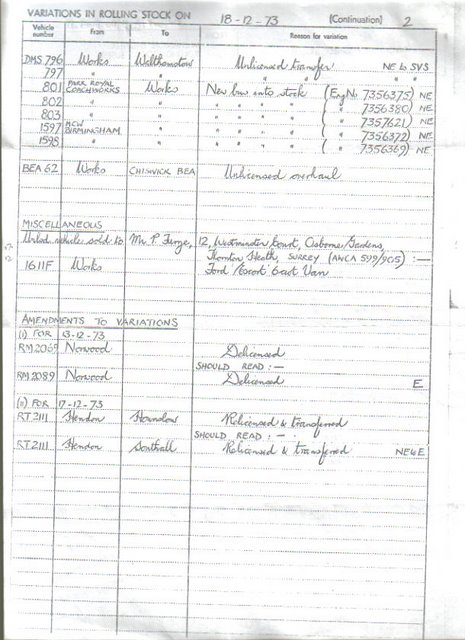 VARIATIONS IN ROLLING STOCK ON 18-12-73 (Continuation) 2
Vehicle number From To Reason for variation
DMS. 796 Works Walthamstow Unlicensed transfer NE to SVS
797 " " " " "
801 PARK ROYAL COACHWORKS Works New bus into stock (Eng No. 7356375) NE
802 " " " " " " ( " 7356380) NE
803 " " " " " " ( " 7357621) NE
1597 MCW BIRMINGHAM. " " " " " ( " 7356372) NE
1598 " " " " " " ( " 7356369) NE
BEA 62 Works CHISWICK BEA Unlicensed overhaul
MISCELLANEOUS
vehicle sold to Mr. P. 12, Westminster Court, Osborne Gardens,
Thornton Heath, SURREY (ANCA 599/905) :—
1611F Works Ford 'Escort' 6cwt Van
AMENDMENTS TO VARIATIONS
(i) FOR 13-12-73
Norwood Delicensed
SHOULD READ :—
RM2089 Norwood Delicensed E
FOR 17-12-73
RT2111 Hendon Hounslow Relicensed & transferred
SHOULD READ :—
RT2111 Hendon Southall Relicensed & transferred NE to E